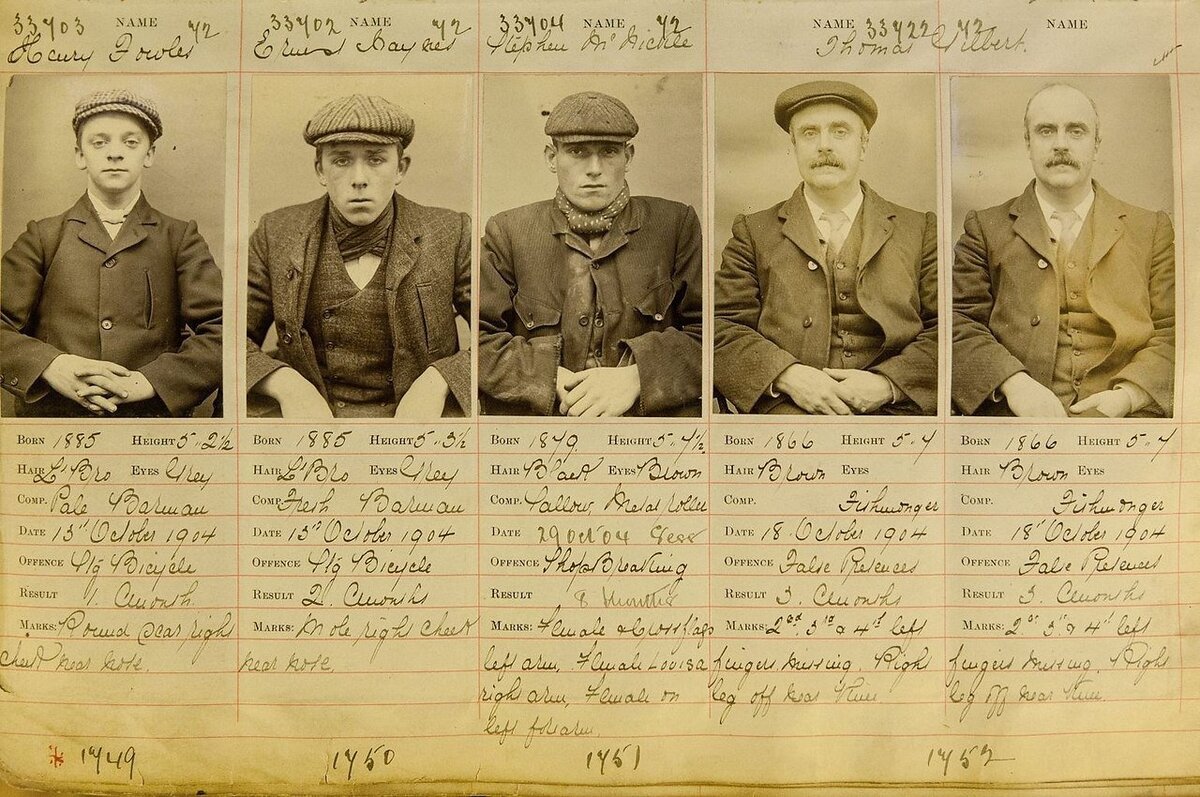 33703 NAME 72
Henry Fowler
33702 NAME 72
Ernest Haynes
33704 NAME 72
Stephen McNickle
NAME 33722 72 NAME
Thomas Gilbert
BORN 1885 HEIGHT 5-2½
HAIR Lt Bro EYES Grey
COMP. Pale Barman
DATE 13th October 1904
OFFENCE Stg Bicycle
RESULT 1. Month
MARKS: Round Scar right
cheek near nose.
1749
BORN 1885 HEIGHT 5-3½
HAIR Lt Bro EYES Grey
COMP. Fresh Barman
DATE 13th October 1904
OFFENCE Stg Bicycle
RESULT 2. Months
MARKS: Mole right cheek
near nose
1750
BORN 1879. HEIGHT 5-7½
HAIR Black EYES Brown
COMP. Sallow, Metal roller
DATE 29 Oct 04 Sess
OFFENCE Shop Breaking
RESULT 8 months
MARKS: Female & Cross flags
left arm, Female Louisa
right arm, Female on
left forearm
1751
BORN 1866 HEIGHT 5-7
HAIR Brown EYES
COMP. Fishmonger
DATE 18. October 1904
OFFENCE False Pretences
RESULT 3. Months
MARKS: 2nd 3rd & 4th left
fingers missing. Right
leg off near Knee
BORN 1866 HEIGHT 5-7
HAIR Brown EYES
COMP. Fishmonger
DATE 18th October 1904
OFFENCE False Pretences
RESULT 3 Months
MARKS: 2nd 3rd & 4th left
fingers missing. Right
leg off near Knee
1752